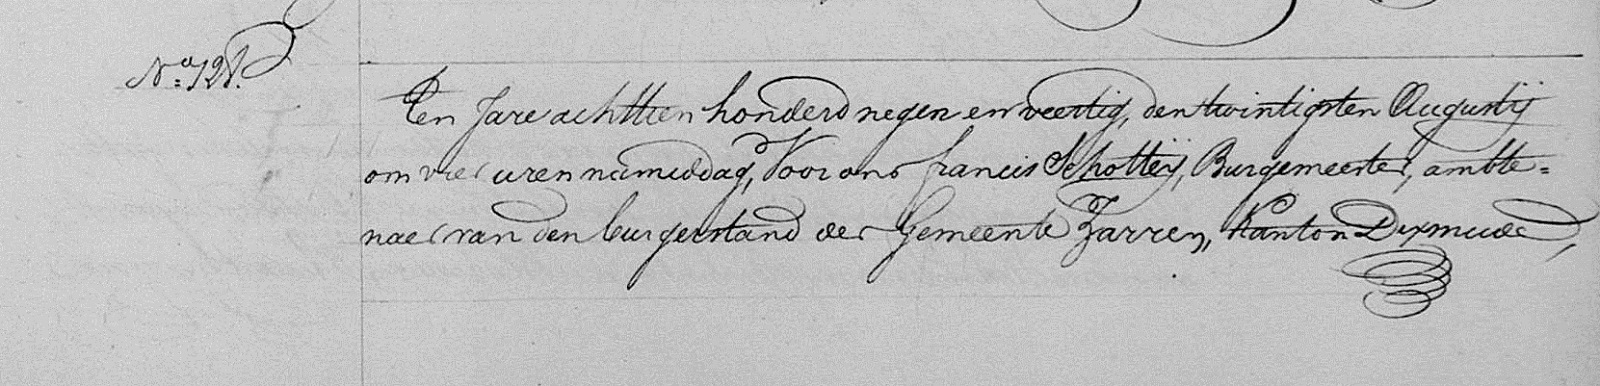 Nº 121.
Ten Jare achttien honderd negen en veertig, den twintigsten Augustij
om vier uren namiddag, Voor ons francis Schotteij, Burgemeester, ambte=
naer van den burgerstand der Gemeente Zarren, Kanton Dixmude,